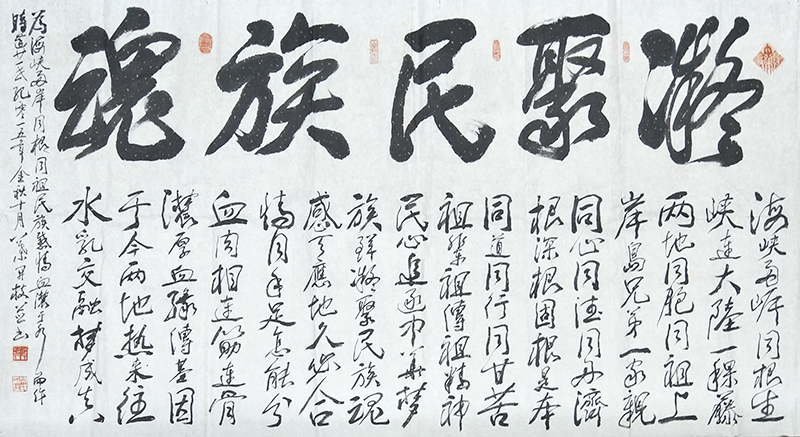 凝聚民族魂
海峡两岸同根生
峡连大陆一棵藤
两地同胞同祖上
岸岛兄弟一家亲
同心同德同舟济
根深根固根是本
同道同行同甘苦
祖業祖傳祖精神
民心追逐中華夢
族群凝聚民族魂
感天應地久必合
情同手足怎能分
血肉相連筋連骨
濃厚血緣傳基因
于今两地熱来往
水乳交融梦成真
為海峡两岸同根同祖民族繁情血濃于水而作
時逢廿一世紀零一五年金秋十月